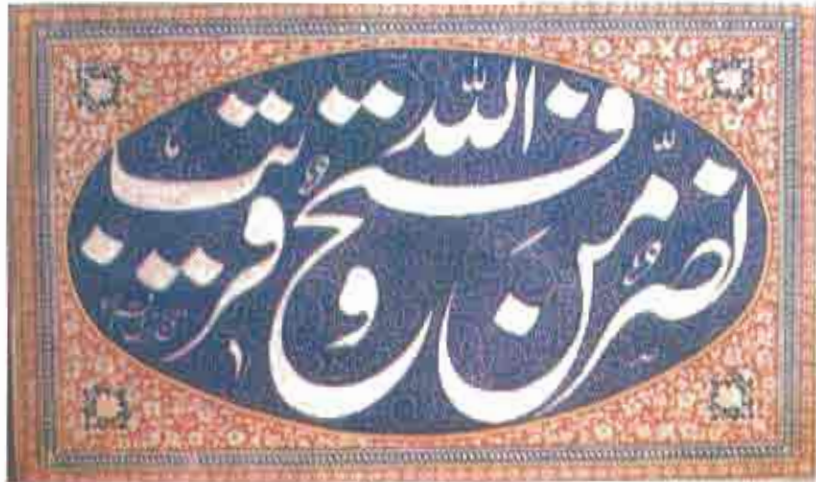 نَصْرٌ مِنَ اللّٰه وفتح قریب